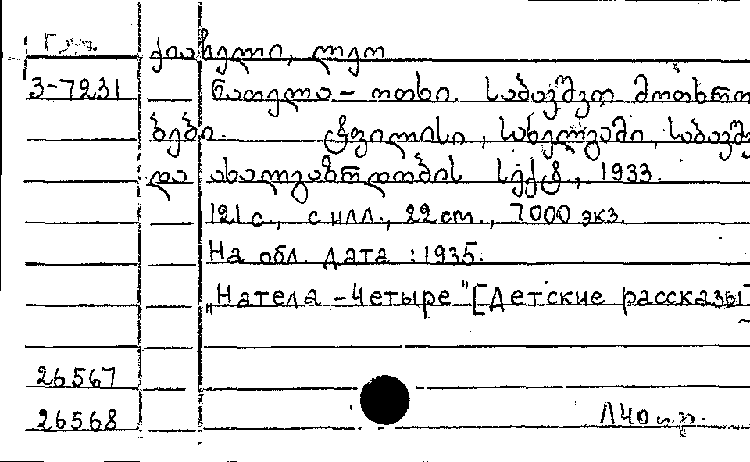 Груз.
ქიაჩელი, ლეო
3-7231 ნათელა - ოთხი. საბავშვო მოთხრო
ბები. ტფილისი, სახელგამი, საბავშვ
და ახალგაზრდობის სექტ., 1933.
121 с., с илл., 22 cm., 7000 экз.
На обл. дата : 1935.
„Натела - Четыре" [Детские рассказы]
26567
26568 Л40 п.р.